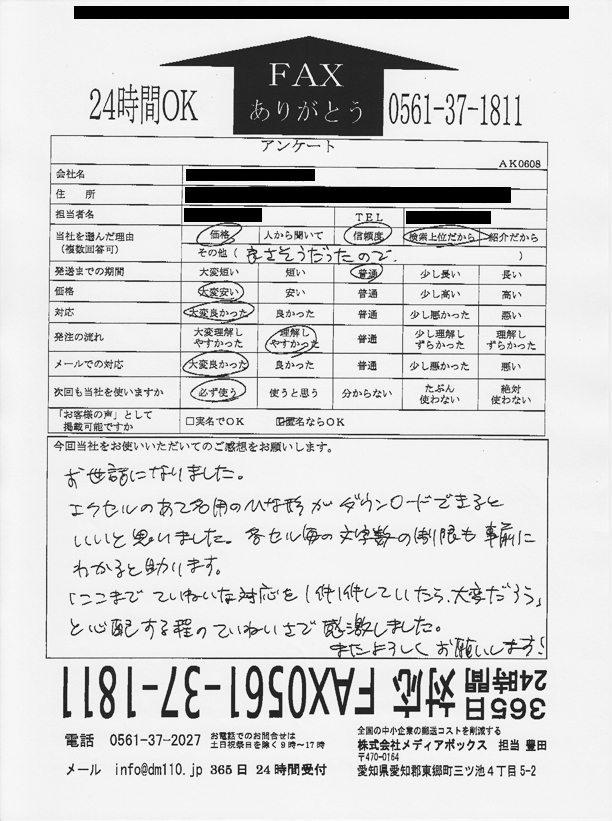 FAX
ありがとう
24時間OK
0561-37-1811
アンケート
AK0608
会社名
住 所
担当者名 TEL
当社を選んだ理由 (複数回答可) 価格 人から聞いて 信頼度 検索上位だから 紹介だから
その他 ( 良さそうだったので。 )
発送までの期間 大変短い 短い 普通 少し長い 長い
価格 大変安い 安い 普通 少し高い 高い
対応 大変良かった 良かった 普通 少し悪かった 悪い
発注の流れ 大変理解しやすかった 理解しやすかった 普通 少し理解しずらかった 理解しずらかった
メールでの対応 大変良かった 良かった 普通 少し悪かった 悪い
次回も当社を使いますか 必ず使う 使うと思う 分からない たぶん使わない 絶対使わない
「お客様の声」として掲載可能ですか □実名でOK ☑匿名ならOK
今回当社をお使いいただいてのご感想をお願いします。
お世話になりました。
エクセルのあて名用のひな形がダウンロードできると
いいと思いました。各セル毎の文字数の制限も事前に
わかると助ります。
「ここまでていねいな対応を1件1件していたら、大変だろう」
と心配する程のていねいさで感激しました。
またよろしくお願いします!
365日24時間 対応 FAX0561-37-1811
電話 0561-37-2027 お電話でのお問合せは 土日祝祭日を除く9時~17時
メール info@dm110.jp 365日 24時間受付
全国の中小企業の郵送コストを削減する
株式会社メディアボックス 担当 豊田
〒470-0164
愛知県愛知郡東郷町三ツ池4丁目5-2